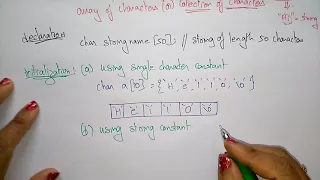 array of characters (or) collection of characters
"A" → string
declaration: char string name [50]; // string of length 50 characters
Initialization: (a) using single character constant
char a[10] = {'H','e','l','l','o','\0'}
H e l l o \0
(b) using string constant